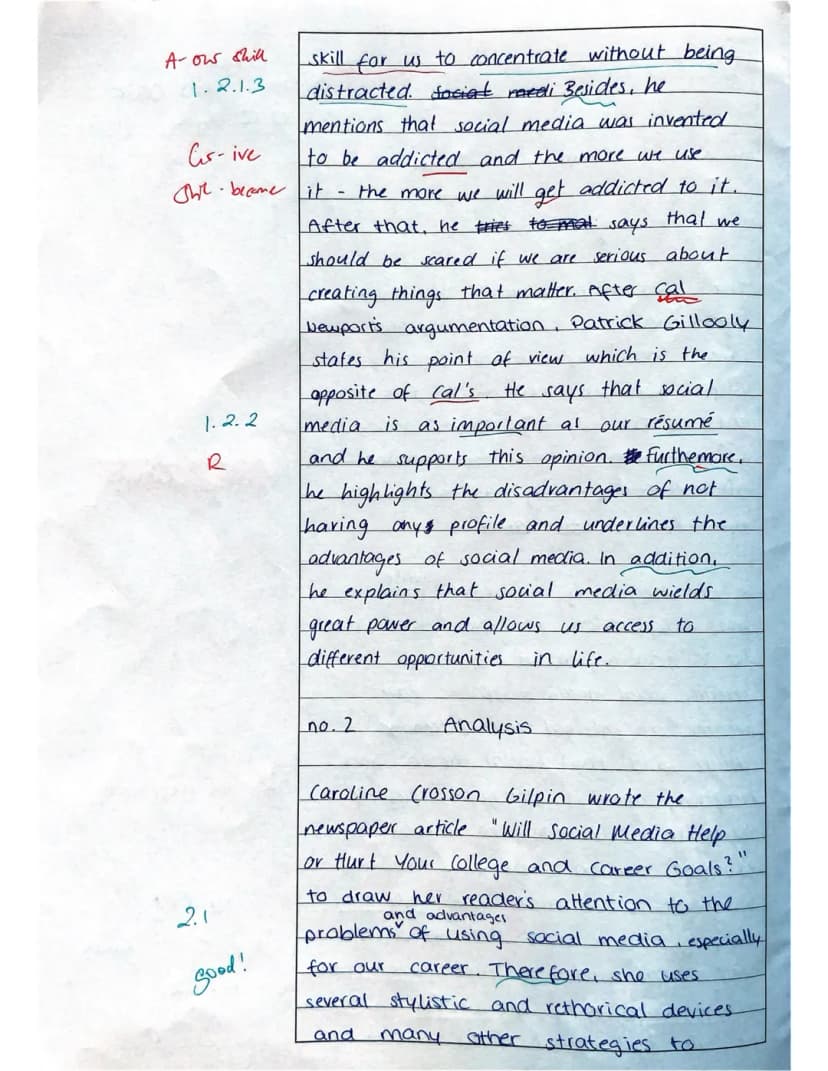 A- our skill
skill for us to concentrate without being
1.2.1.3
distracted. social medi Besides, he
mentions that social media was invented
Gr-ive
to be addicted and the more we use
Stil-become
it - the more we will get addicted to it.
After that, he tries to says that we
should be scared if we are serious about
creating things that matter. After Cal
Newport's argumentation, Patrick Gillooly
states his point of view which is the
opposite of Cal's. He says that social
1.2.2
media is as important as our résumé
R
and he supports this opinion. Furthemore,
he highlights the disadvantages of not
having any profile and underlines the
advantages of social media. In addition,
he explains that social media wields
great power and allows us access to
different opportunities in life.
no. 2 Analysis
Caroline Crosson Gilpin wrote the
newspaper article "Will Social Media Help
or Hurt Your College and Career Goals?"
to draw her reader's attention to the
and advantages
2.1
problems of using social media, especially
good!
for our career. Therefore, she uses
several stylistic and rethorical devices
and many other strategies to